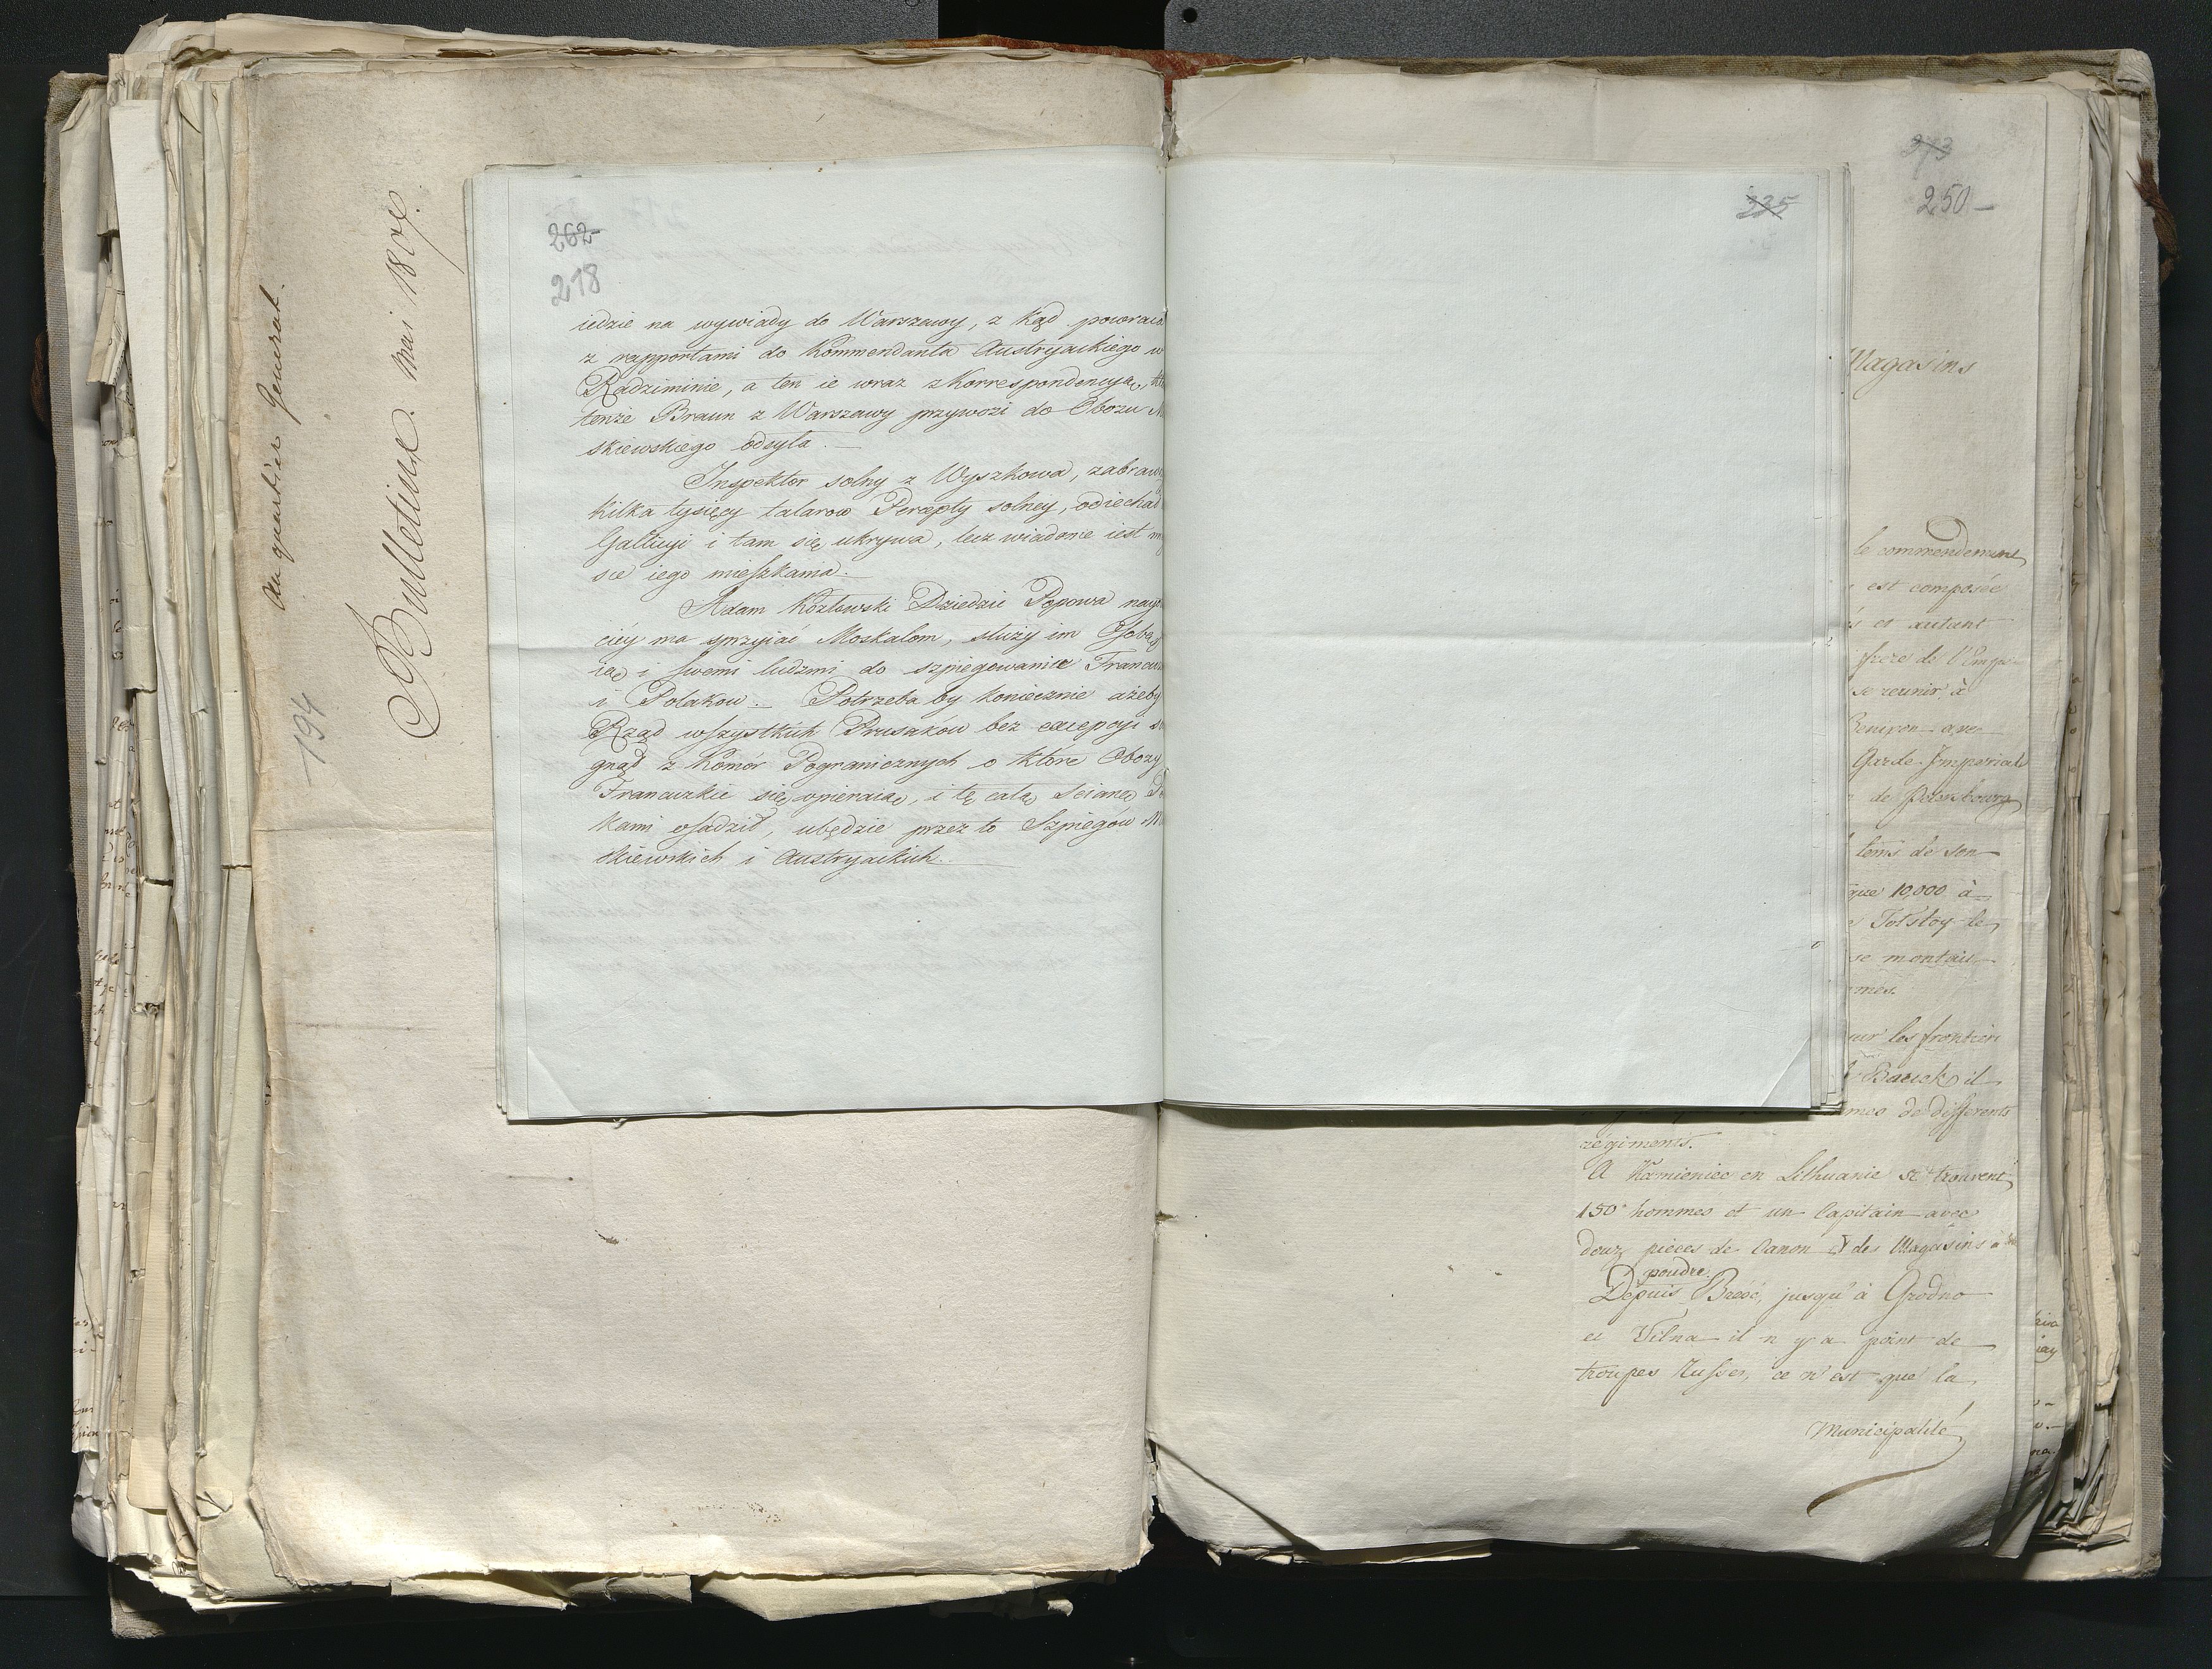 Au quartier General.
Bulletins. Mai 1807.
194
262
218
iedzie na wywiady do Warszawy, z kąd powraca
z rapportami do Kommendanta Austryackiego w
Radziminie, a ten ie wraz z Korrespondencyą, 
tenże Braun z Warszawy przywozi do Obozu M
skiewskiego odsyła.
Inspektor solny z Wyszkowa, zabraw
kilka tysięcy talarow Percepty solney, odiechał
Gallicyi i tam się ukrywa, lecz wiadome iest m
sce iego mieszkania.
Adam Kozłowski Dziedzic Popowa nayw
cięy ma sprzyiać Moskalom, służy im Osobą
ią i swemi ludzmi do szpiegowania Francu
i Polakow. Potrzeba by koniecznie ażeby
Rząd wszystkich Prusaków bez excepcyi
gnął z Komór Pogranicznych o które Obozy
Francuzkie się opieraią, i tę całą scianę
kami osadził, ubędzie przez to Szpiegów M
skiewskich i Austryackich.
235
273
250
Magasins
le commendement
est composée
et autant
frere de l'Empe-
se reunir à
avec
Garde Imperiale
de Petersbourg
tems de son
que 10,000 à
Tolstoy le
se montait
mes.
sur les frontieri
il
mes de differents
régiments.
A Kamieniec en Lithuanie se trouvent
150 hommes et un Capitain avec
douz pièces de Canon & des Magasins à
poudre.
Depuis Brzesć, jusqu'à Grodno
et Vilna il n'y a point de
troupes Russes, ce n'est que la
Municipalité